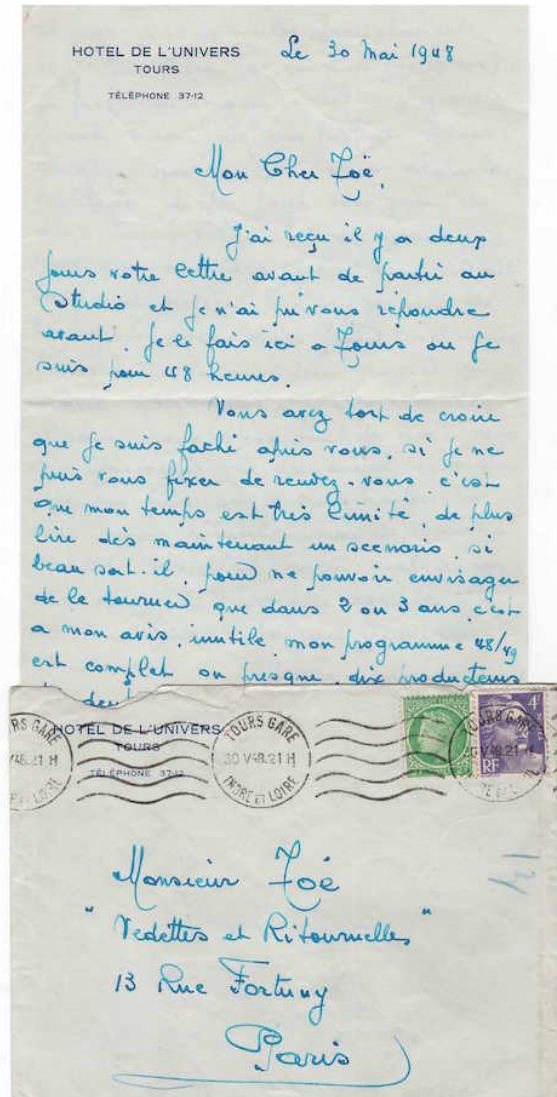 HOTEL DE L'UNIVERS
TOURS
TÉLÉPHONE 37-12
Le 30 Mai 1948
Mon Cher Zoë,
J'ai reçu il y a deux
jours votre lettre avant de partir au
Studio et je n'ai pu vous répondre
avant. Je le fais ici a Tours ou je
suis pour 48 heures.
Vous avez tort de croire
que je suis faché après vous, si je ne
puis vous fixer de rendez-vous, c'est
que mon temps est très limité, de plus
lire dès maintenant un scenario, si
beau soit-il, pour ne pouvoir envisager
de le tourner que dans 2 ou 3 ans, c'est
a mon avis, inutile, mon programme 48/49
est complet ou presque, dix producteurs
HOTEL DE L'UNIVERS
TOURS
TÉLÉPHONE 37-12
RS GARE
/48.21 H
TOURS GARE
30 V48.21 H
INDRE ET LOIRE
4F
TOURS GARE
RF
Monsieur Zoé
"Vedettes et Ritournelles"
13 Rue Fortuny
Paris